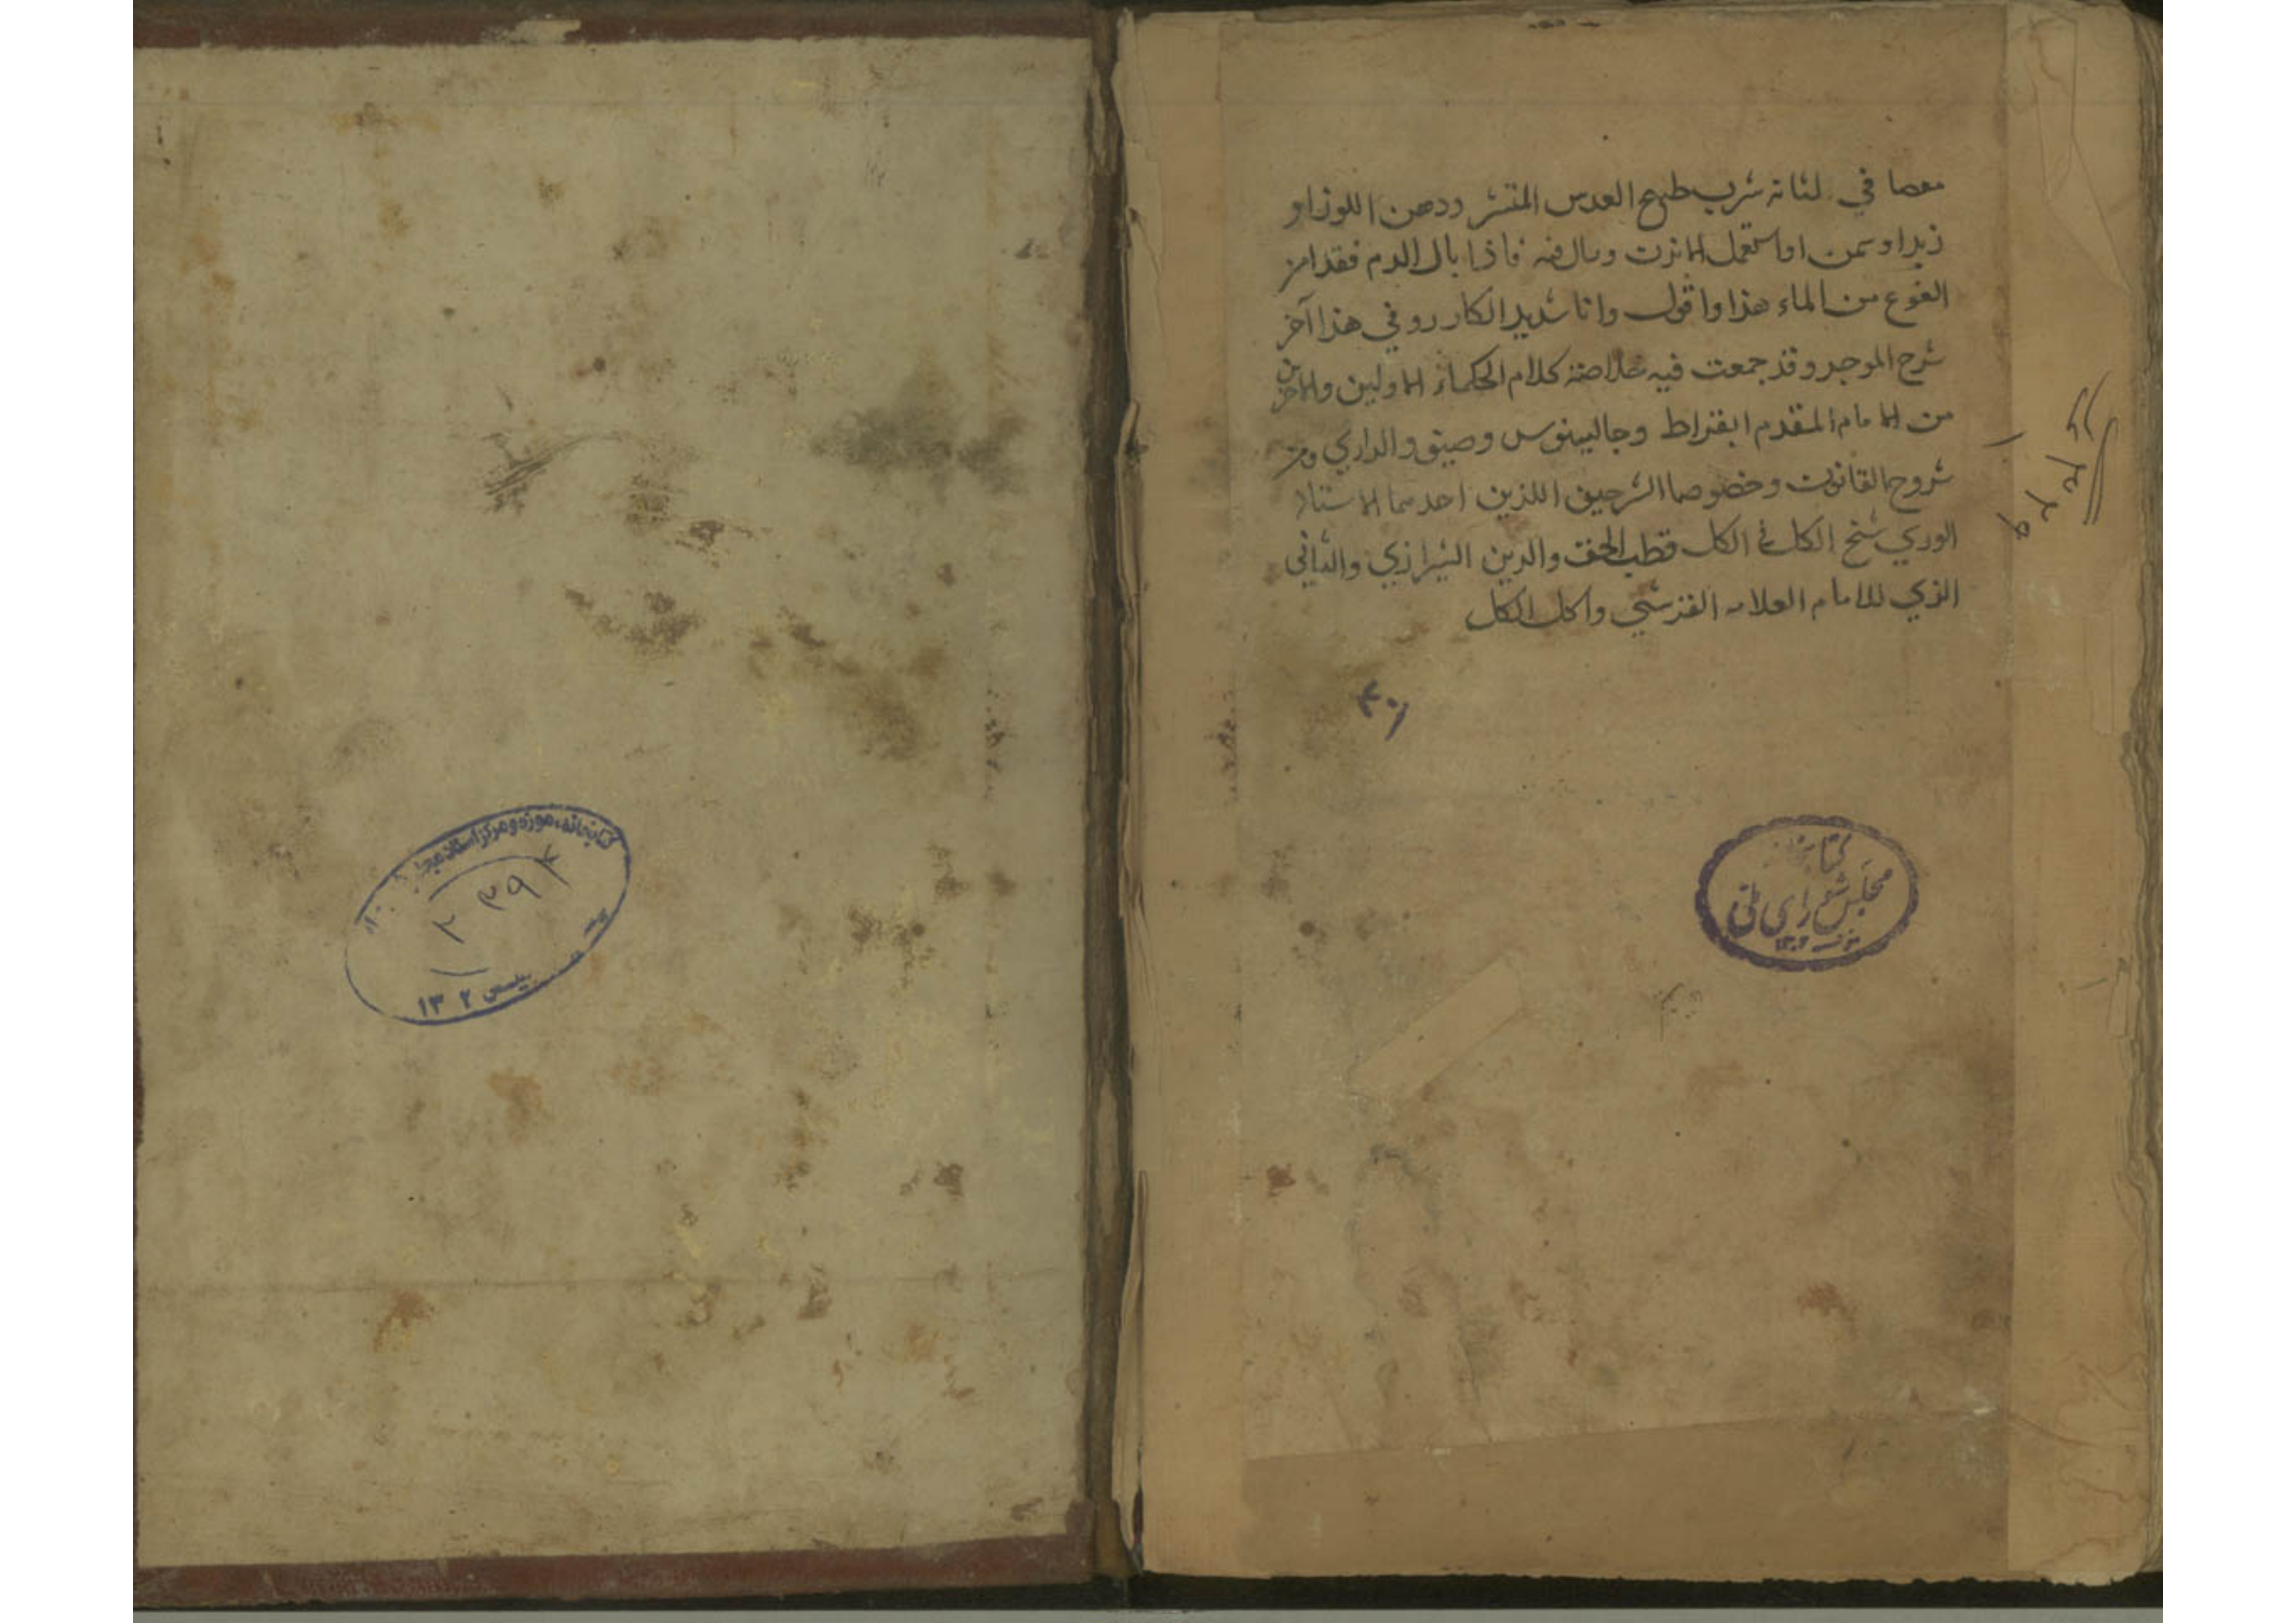 معصا في لثانه شرب طبيخ العدس المقشر ودهن اللوز او
زبد او سمن او استعمل الابزن وبال فيه فاذا بال الدم فقد امن
الفزع من الماء هذا واقول وانا شديد الكار روفي هذا آخر
شرح الموجز وقد جمعت فيه خلاصة كلام الحكماء الاولين والاخرين
من الامام المقدم ابقراط وجالينوس وصيتو والرازي ومن
شروح القانون وخصوصا الشرحين اللذين احدهما الاستاد
الوري شيخ الكل في الكل قطب الحق والدين الشيرازي والثاني
الذي للامام العلامه القرشي واكل الكل
۴۰۱
کتابخانه
مجلس شورای ملی
۱۳۰۲
۶۳۲۹
کتابخانه، موزه و مرکز اسناد مجلس
۲۳۹۴
۱۳۰۲